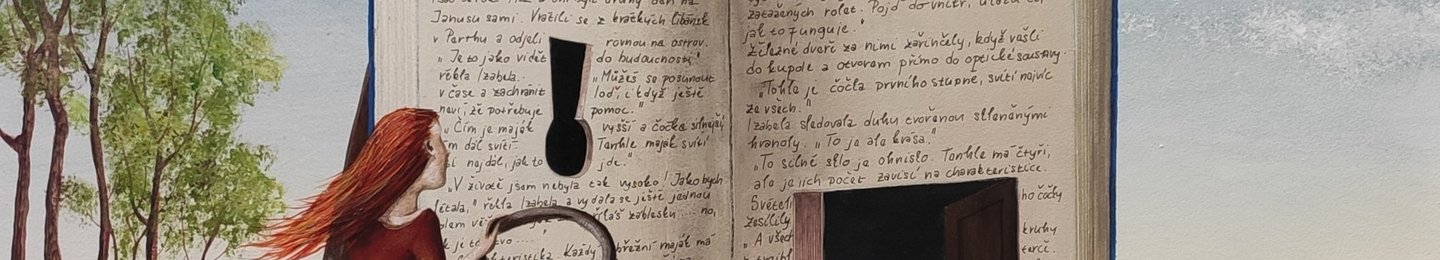 Janusu sami. Vrátili se z krátkých líbánek
v Perthu a odjeli rovnou na ostrov.
„Je to jako vidět do budoucnosti!"
řekla Izabela. „Můžeš se posunout
v čase a zachránit loď, i když ještě
neví, že potřebuje pomoc."
„Čím je maják vyšší a čočka silnější,
m dál svítí. Tenhle maják svítí
si nejdál, jak to jde."
„V životě jsem nebyla tak vysoko! Jako bych
létala," řekla Izabela a vydala se ještě jednou
záblesku ... no,
Každý pobřežní maják má
zatažených rolet. Pojď dovnitř,
jak to funguje."
Železné dveře za nimi zařinčely, když vešli
do kupole a otvorem přímo do optické soustavy.
„Tohle je čočka prvního stupně, svítí nejvíc
ze všech."
Izabela sledovala duhu tvořenou skleněnými
hranoly. „To je ale krása."
„To silné sklo je ohnisko. Tenhle má čtyři,
ale jejich počet závisí na charakteristice.
ho čočky
zesílily
kruhy
„A všech
terče.